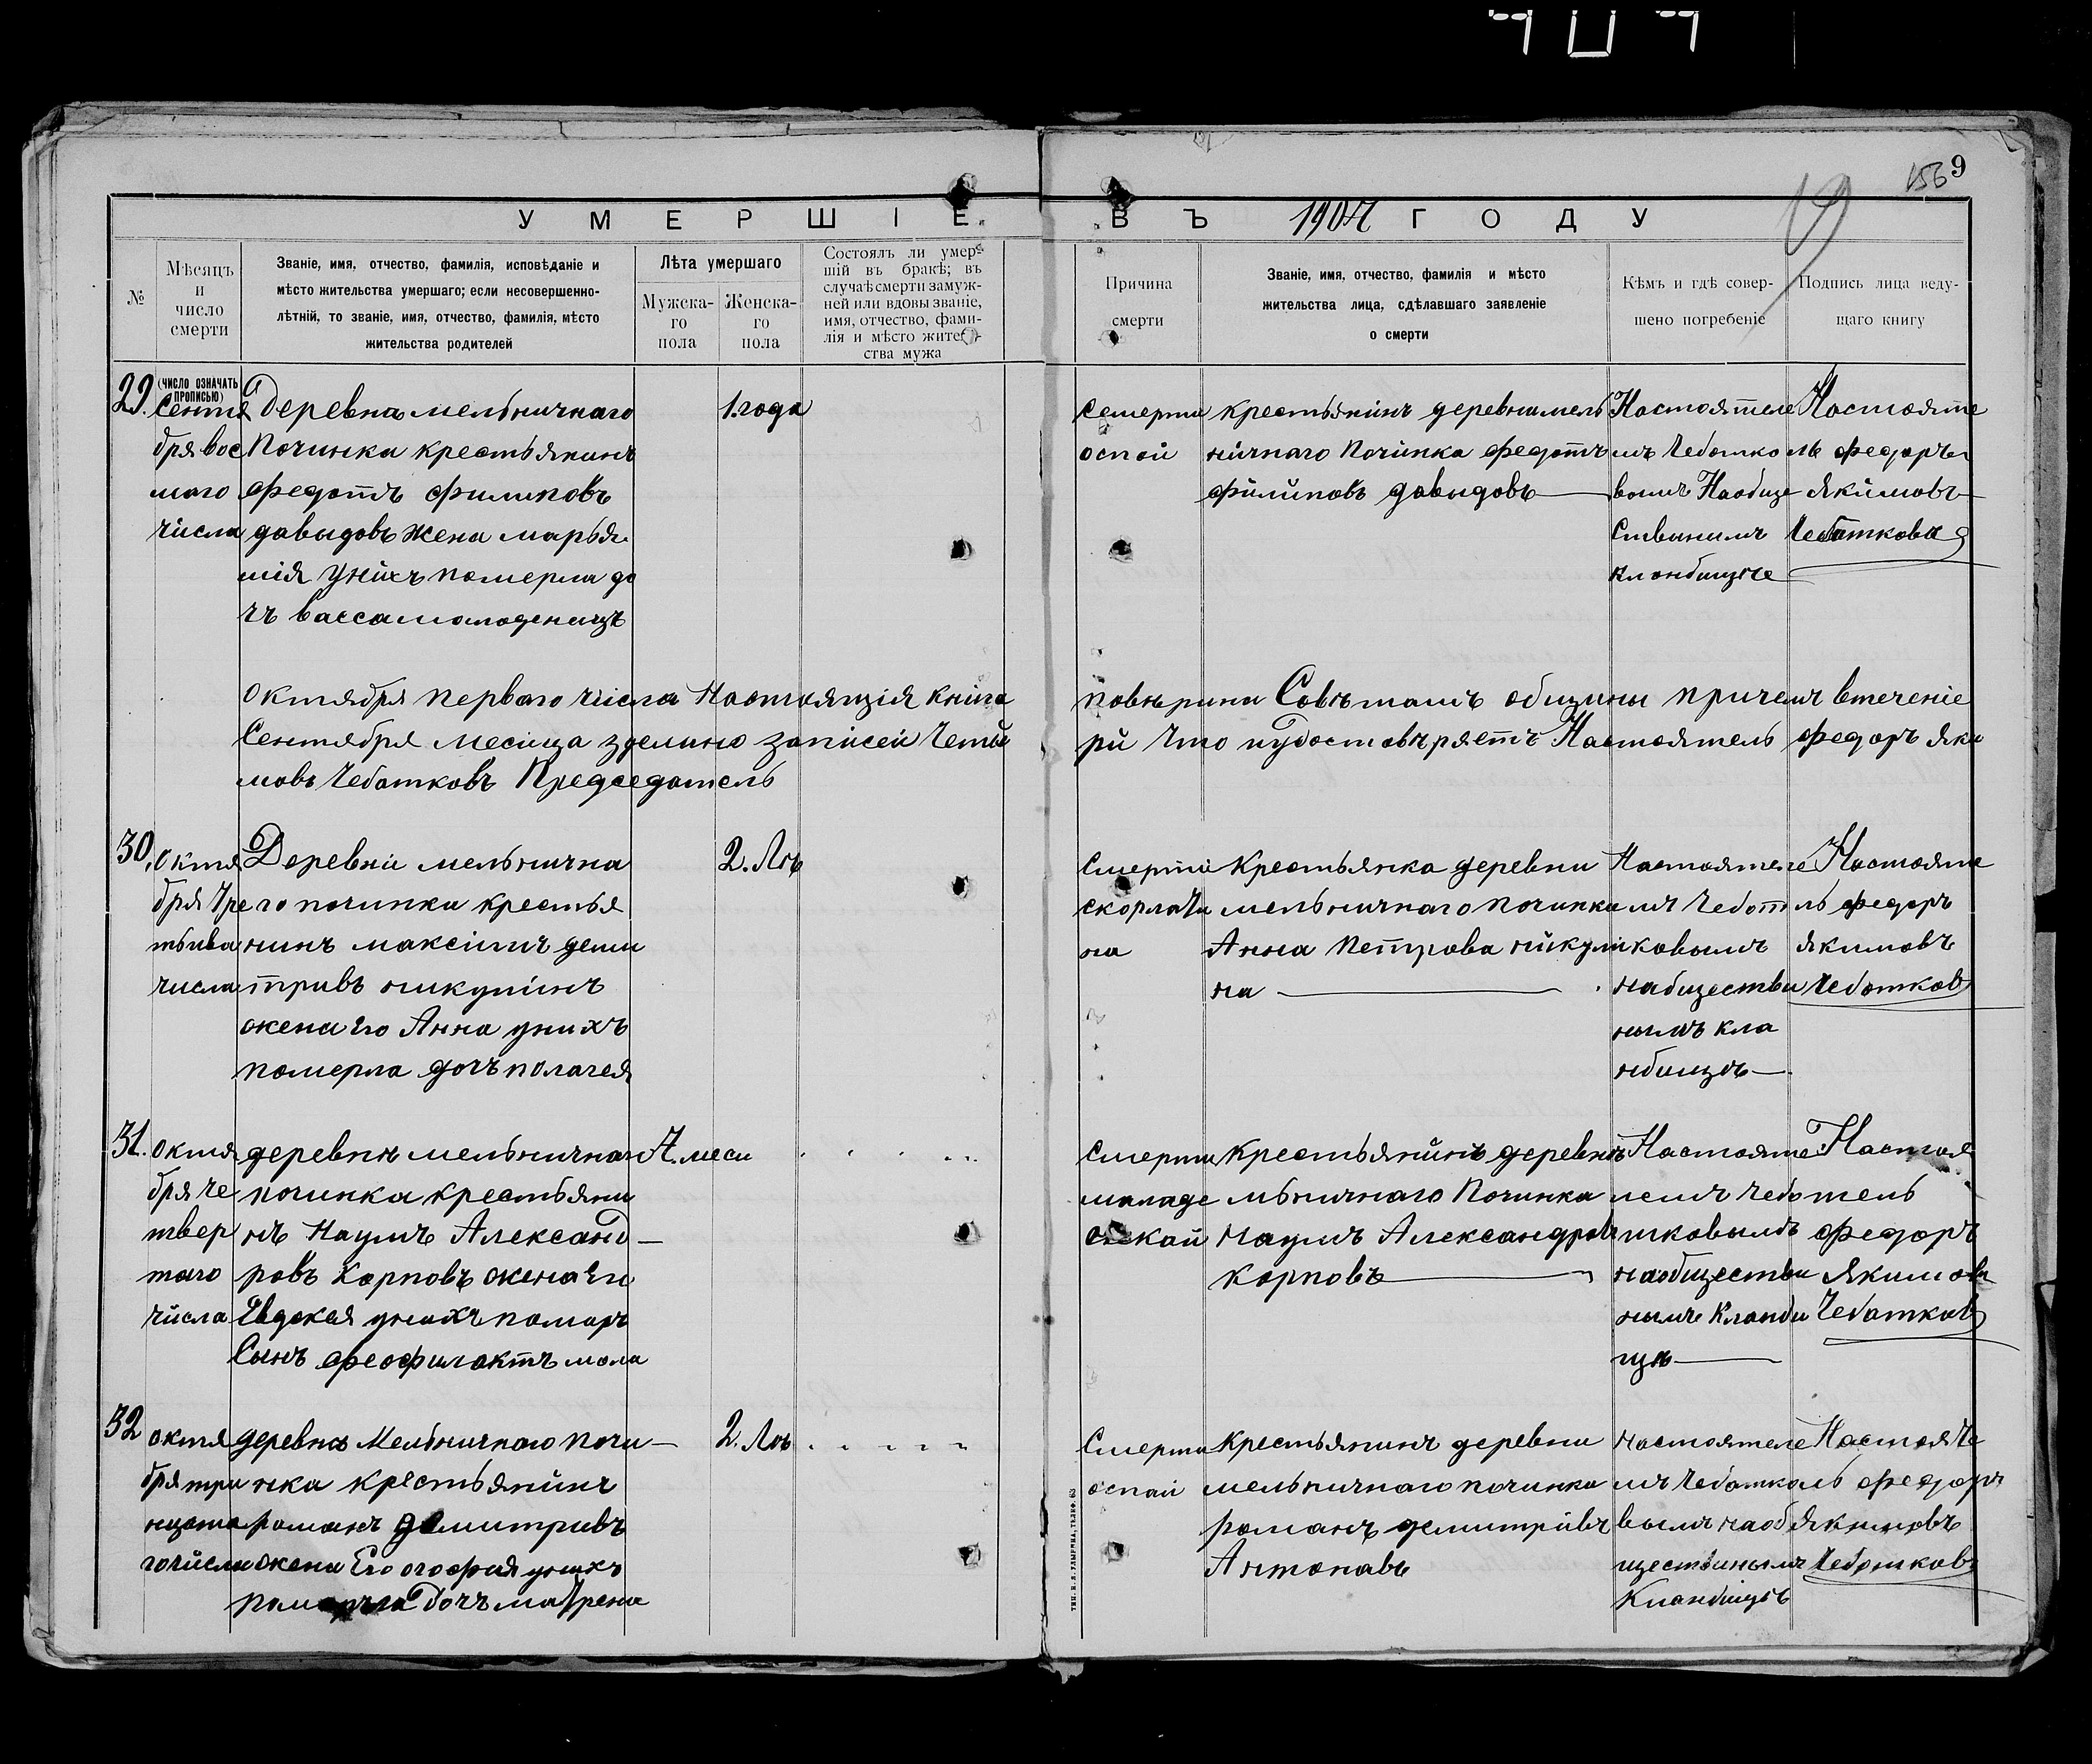 156 9
19
УМЕРШІЕ ВЪ 1907 ГОДУ
№
Мѣсяцъ
и
число
смерти
Званіе, имя, отчество, фамилія, исповѣданіе и
мѣсто жительства умершаго; если несовершенно-
лѣтній, то званіе, имя, отчество, фамилія, мѣсто
жительства родителей
Лѣта умершаго
Мужска-
го
пола
Женска-
го
пола
Состоялъ ли умер-
шій въ бракѣ; въ
случаѣ смерти замуж-
ней или вдовы званіе,
имя, отчество, фами-
лія и мѣсто житель-
ства мужа
Причина
смерти
Званіе, имя, отчество, фамилія и мѣсто
жительства лица, сдѣлавшаго заявленіе
о смерти
Кѣмъ и гдѣ совер-
шено погребеніе
Подпись лица веду-
щаго книгу
29.
(число означать
прописью)
Сентя
бря вос
маго
числа
Деревна мельничнаго
Починка крестьянинъ
Федотъ филиповъ
давыдовъ жена марья
мія унихъ померла до
чъ васса молоденицъ
1. года
Семерти
оспой
крестьянинъ деревни мель
ничнаго Починка федотъ
филиповъ давыдовъ
Настоятеле
мъ Чеботко
вымъ Наобще
Ственымъ
кландбище
Настояте
ль федоръ
Якимовъ
Чеботковъ
Октября перваго числа Настоящія книга повѣрина Совѣтамъ общины причемъ втеченіе
Сентября месица зделино записей Четы ри Что иудостовѣряетъ Настоятель федоръ яки
мовъ Чеботковъ Председатель
30.
Октя
бря Тре
тьива
числа
Деревни мельнична
го починки крестья
нинъ максимъ деми
тривъ никулинъ
жена его Анна унихъ
померла дочъ полагея
2. Лѣ
Смерти
скорлати
на
Крестьянка деревни
мельничнаго починка
Анна Петрова никули
на
Настоятеле
мъ Чебот
ковымъ
набществи
нымъ кла
нбищъ
Настояте
ль федоръ
якимовъ
Чеботковъ
31.
Октя
бря че
твер
таго
числа
деревнѣ мельничнаг
починка крестьяни
нъ Наумъ Александ
ровъ Карповъ жена его
Евдокея унихъ померъ
Сынъ феофилактъ мола
7. меси
Смерти
маладе
нскай
крестьянинъ деревнѣ
мльничнаго Починка
Наумъ Александровъ
карповъ
Настояте
лемъ чебо
тковымъ
наобществи
нымъ Кландби
щѣ
Настоя
тель
федоръ
якимовъ
Чеботковъ
32
октя
бря три
нцота
го числа
деревна Мельничнаго почи
нка крестьянинъ
романъ демитривъ
жена Его огофия унихъ
померла Дочъ матрена
2. Лѣ
Смерти
оспаи
крестьянинъ деревни
мельничнаго починка
романъ демитривъ
Антонавъ
настоятеле
мъ Чеботко
вымъ наоб
ществинымъ
Кланбищъ
Настояте
ль федоръ
якимовъ
Чеботковъ